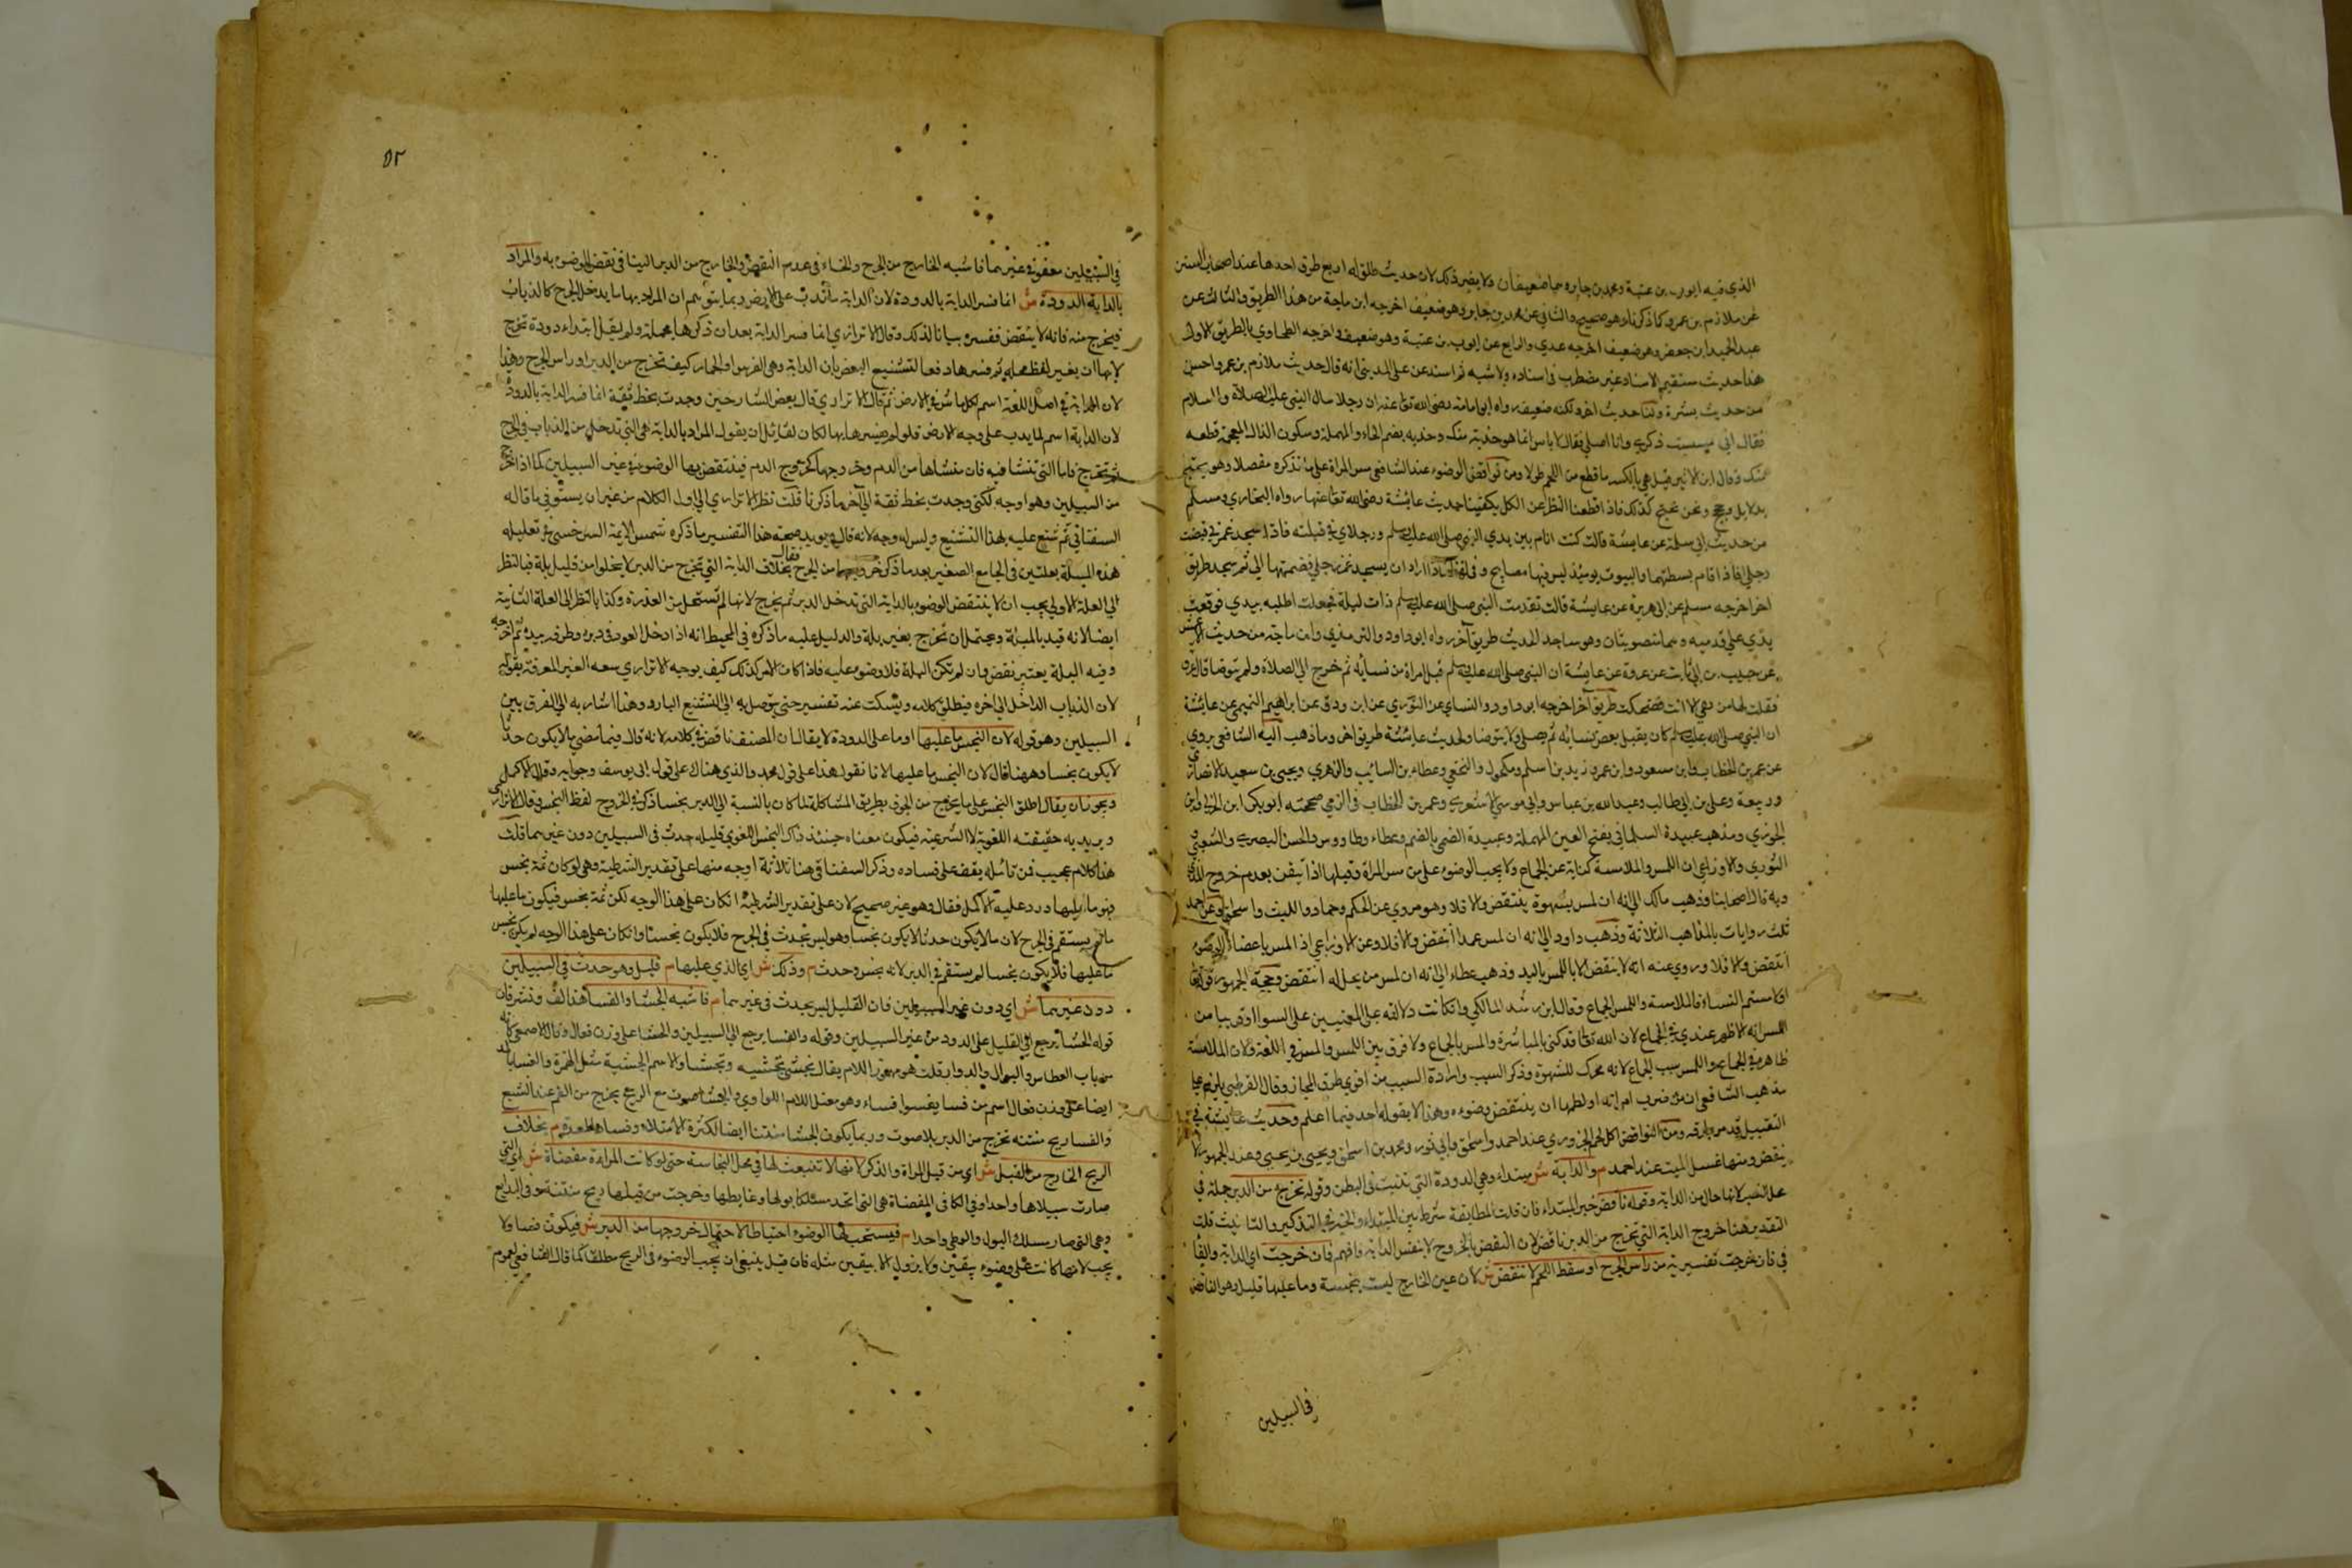 الذي فيه ايوب بن عتبة ومحمد بن جابر وهما ضعيفان ولا يضر ذلك لان حديث طلق له اربع طرق احدها عند اصحاب السنن
عن ملازم بن عمرو كما ذكرنا وهو صحيح والثاني عن محمد بن جابر وهو ضعيف اخرجه ابن ماجة من هذا الطريق والثالث عن
عبد الحميد ابن جعفر وهو ضعيف اخرجه عدي والرابع عن ايوب بن عتبة وهو ضعيف واخرجه الطحاوي بالطريق الاول
هذا حديث مستقيم الاسناد غير مضطرب في اسناده ولا متنه ثم اسند عن علي المديني انه قال حديث ملازم بن عمرو احسن
من حديث بسرة ولنا حديث اخر ولكنه ضعيف رواه ابو امامة رضي الله تعا عنه ان رجلا سال النبي عليه الصلاة والسلام
فقال اني مسست ذكري وانا اصلي فقال لا باس انما هو حذية منك وحذيه بضم الحاء المهملة وسكون الذال المعجمة قطعه
منك وقال ابن الاثير قيل هي بالكسر ما قطع من اللحم طولا ومن نواقض الوضوء عند الشافعي مس المراة على ما نذكره مفصلا وهو يحتج
بدلايل ونحن نحتج كذلك فاذا قطعنا النظر عن الكل يكفينا حديث عايشة رضي الله تعا عنها رواه البخاري ومسلم
من حديث ابي سلمة عن عايشة قالت كنت انام بين يدي النبي صلى الله عليه وسلم ورجلاي في قبلته فاذا سجد غمزني فقبضت
رجلي فاذا قام بسطتهما والبيوت يومئذ ليس فيها مصابيح وفي لفظ اذا اراد ان يسجد غمز رجلي فضممتها الي ثم سجد طريق
اخر اخرجه مسلم عن ابي هريرة عن عايشة قالت فقدت النبي صلى الله عليه وسلم ذات ليلة فجعلت اطلبه بيدي فوقعت
يدي على قدميه وهما منصوبتان وهو ساجد الحديث طريق آخر رواه ابو داود والترمذي وابن ماجة من حديث الاعمش
عن حبيب بن ابي ثابت عن عروة عن عايشة ان النبي صلى الله عليه وسلم قبل امراة من نسائه ثم خرج الى الصلاة ولم يتوضا قال عروة
فقلت لها من هي الا انت فضحكت طريق آخر اخرجه ابو داود والنساي عن الثوري عن ابي روق عن ابراهيم التيمي عن عائشة
ان النبي صلى الله عليه وسلم كان يقبل بعض نسائه ثم يصلي ولا يتوضا ولحديث عايشة طريق اخر وما ذهب اليه الشافعي يروي
عن عمر بن الخطاب وابن مسعود وابن عمر وزيد بن اسلم ومكحول والنخعي وعطاء بن السائب والزهري ويحيى بن سعيد الانصاري
وربيعة وعلي بن ابي طالب وعبد الله بن عباس وابي موسى الاشعري وعمر بن الخطاب في الذي صححه ابو بكر ابن العربي وابن
الجوزي ومذهب عبيدة السلماني بفتح العين المهملة وعبيدة الضبي بالضم وعطاء وطاووس والحسن البصري والشعبي
الثوري والاوزاعي ان اللمس والملامسة كناية عن الجماع ولا يجب الوضوء على من مس المراة وقبلها اذا تيقن بعدم خروج المذي
وبه قال اصحابنا وذهب مالك الى انه ان لمس بشهوة ينتقض والا فلا وهو مروي عن الحكم وحماد والليث واسحاق وعن احمد
ثلث روايات بالمذاهب الثلاثة وذهب داود الى انه ان لمس عمدا انتقض والا فلا وعن الاوزاعي اذا لمس باعضاء الوضوء
انتقض والا فلا وروي عنه انه لا ينقض الا باللمس باليد وذهب عطاء الى انه ان لمس من يحل له انتقض وحجة الجمهور قوله تعا
اولامستم النساء فالملامسة واللمس الجماع وقال ابن رشد المالكي وان كانت دلالته على المعنيين على السوا او قريبا من
اللمس انه لاظهر عندي في الجماع لان الله تعالى قد كنى بالمباشرة والمس بالجماع ولا فرق بين اللمس والمس في اللغة ولان الملامسة
ظاهر في الجماع واللمس سبب الجماع لانه محرك للشهوة وذكر السبب وارادة المسبب من اقوى طرق المجاز وقال القرطبي يلزم على
مذهب الشافعي ان من ضرب امراته او لطمها ان ينتقض وضوءه وهذا لا يقوله احد فيما اعلم وحديث عائشة في
التقبيل قد مر ومن النواقض اكل لحم الجزوري عند احمد واسحق وابي ثور ومحمد بن اسحق ويحيى بن يحيى وعند الجمهور لا
ينقض ومنها غسل الميت عند احمد م والدابة ش مبتداء وهي الدودة التي تنبت في البطن وقوله تخرج من الدبر جملة في
محل النصب لانها حال من الدابة وقوله ناقض خبر المبتداء فان قلت المطابقة شرط بين المبتداء والخبر في التذكير والتانيث قلت
التقدير هنا خروج الدابة التي تخرج من الدبر ناقض لان النقض بالخروج لا بنفس الدابة فافهم فان خرجت اي الدابة والفا
في فان خرجت تفسيرية من راس الجرح او سقط اللحم لا تنقض ش لان عين الخارج ليست بنجسة وما عليها قليل وهو الناقض
في السبيلين
٥٢
في السبيلين معفو في غيرهما فاشبه الخارج من الجرح والجشاء في عدم النقض والخارج من الدبر الفسا في نقض الوضوء به والمراد
بالدابة الدودة ش انما فسر الدابة بالدودة لان الدابة ما تدب على الارض وربما يتوهم ان المراد بها ما يدخل الجرح كالذباب
فيخرج منه فانه لا ينقض ففسره بيانا لذلك وقال الاترازي انما فسر الدابة بعد ان ذكرها مجملة ولم يقل ابتداء دودة تخرج
لان الدابة في اصل اللغة اسم لكل ما في الارض ثم قال الاترازي قال بعض الشارحين وجدت بخط ثقة انما فسر الدابة بالدودة
لان الدابة اسم لما يدب على وجه الارض فلو لم يفسرها بها لكان لقائل ان يقول المراد بالدابة هي التي تدخل من الذباب في الجرح
ثم تخرج فاما التي تنشا فيه فان منشاها من الدم وخروجها كخروج الدم فينتقض بها الوضوء في غير السبيلين كما اذا خرج
من السبيلين وهو اوجه لكني وجدت بخط ثقة الى آخر ما ذكرنا قلت نظر الاترازي الى اول الكلام من غير ان يستوفي ما قاله
السغناقي ثم شنع عليه بهذا التشنيع وليس له وجه لانه قال ويويد صحة هذا التفسير ما ذكره شمس الايمة السرخسي في تعليله
هذه المسلة بعلتين في الجامع الصغير بعد ما ذكر من الجرح فقال بخلاف الدابة التي تخرج من الدبر لا يخلوا من قليل بلة فبالنظر
الى العلة الاولى يجب ان لا ينتقض الوضوء بالدابة التي تدخل الدبر ثم يخرج لانها لم تستحل من العذرة وكذا بالنظر الى العلة الثانية
ايضا لانه قيد بالبلة ويحتمل ان تخرج بغير بلة والدليل عليه ما ذكره في المحيط انه اذا دخل العود في دبره وطرفه بيده ثم اخرجه
وفيه البلة يعتبر نقض وان لم تكن البلة فلا وضوء عليه فاذا كان الامر كذلك كيف يوجه الاترازي سعه الغير المعرفة بقوله
لان الذباب الداخل الى اخره فيطلق كلامه ويسكت عند تفسير حتى يتوصل به الى التشنيع البارد وهذا اشار به الى الفرق بين
السبيلين وهو قوله لان النجس ما عليها اوما على الدودة لا يقال ان المصنف ناقض في كلامه لانه قال فيما مضى مالا يكون حدثا
لا يكون نجسا وههنا قال لان النجس ما عليها لانا نقول هذا على قول محمد والذي هناك على قول ابي يوسف وجوابه وقال الاكمل
ويجوز ان يقال اطلق النجس على ما يخرج من الجوف بطريق المشاكلة لما كان بالنسبة الى الدبر نجسا ذكر في الخروج لفظ النجس وقال الاترازي
ويريد به حقيقته اللغوية لا الشرعية فيكون معناه حينئذ ذاك النجس اللغوي قليله حدث في السبيلين دون غيرهما قلت
هذا كلام عجيب فمن تامله يقف على فساده وذكر السغناقي هنا ثلاثة اوجه منها على تقدير الشرطية وهي لو كان ثمة نجس
فهو ما يليها ورد عليه الاكمل فقال وهو غير صحيح لان على تقدير الشرطية ان كان على هذا الوجه لكن ثمة نجس فيكون ما عليها
ما لم يستقم في الجرح لان ما لا يكون حدثا لا يكون نجسا وهو ليس بحدث في الجرح فلا يكون نجسا وان كان على هذا الوجه لم يكن نجس
ما عليها فلا يكون نجسا لم يستقم في الدبر لانه نجس وحدث م وذلك ش اي الذي عليها م قليل وهو حدث في السبيلين
دون غيرهما ش اي دون غير السبيلين فان القليل ليس بحدث في غيرهما م فاشبه الجشا والفسا هذا لف ونشر فان
قوله الجشا يرجع الى القليل على الدود من غير السبيلين وقوله والفسا يرجع الى السبيلين والجشا على وزن فعال وقال الاصمعي كانه
من باب العطاس والبوال والدوار قلت هو مهموز اللام يقال تجشى تجشيه وتجشا والاسم الجشية مثل الهمزة والفسا بالمد
ايضا على وزن فعال اسم من فسا يفسوا فساء وهو معتل اللام الواوي والجشا صوت مع الريح يخرج من الفم عند الشبع
والفسا ريح منتنه تخرج من الدبر بلا صوت وربما يكون الجشا منتنا ايضا لكثرة الامتلاء وفساد المعدة م بخلاف
الريح الخارج من القبل ش اي من قبل المراة والذكر لانها لا تنبعث لها في محل النجاسة حتى لو كانت المراة مفضاة ش اي التي
صارت سبيلاها واحدا وفي الكافي المفضاة هي التي اتحد مسلكا بولها وغايطها وخرجت من قبلها ريح منتنة وفي البدايع
وهي التي صار مسلك البول والوطي واحدا م فيستحب لها الوضوء احتياطا لاحتمال خروجها من الدبر ش فيكون نقضا ولا
يجب لانها كانت على وضوء بيقين ولا يزول الا بيقين مثله فان قيل ينبغي ان يجب الوضوء في الريح مطلقا كما قال الشافعي لعموم